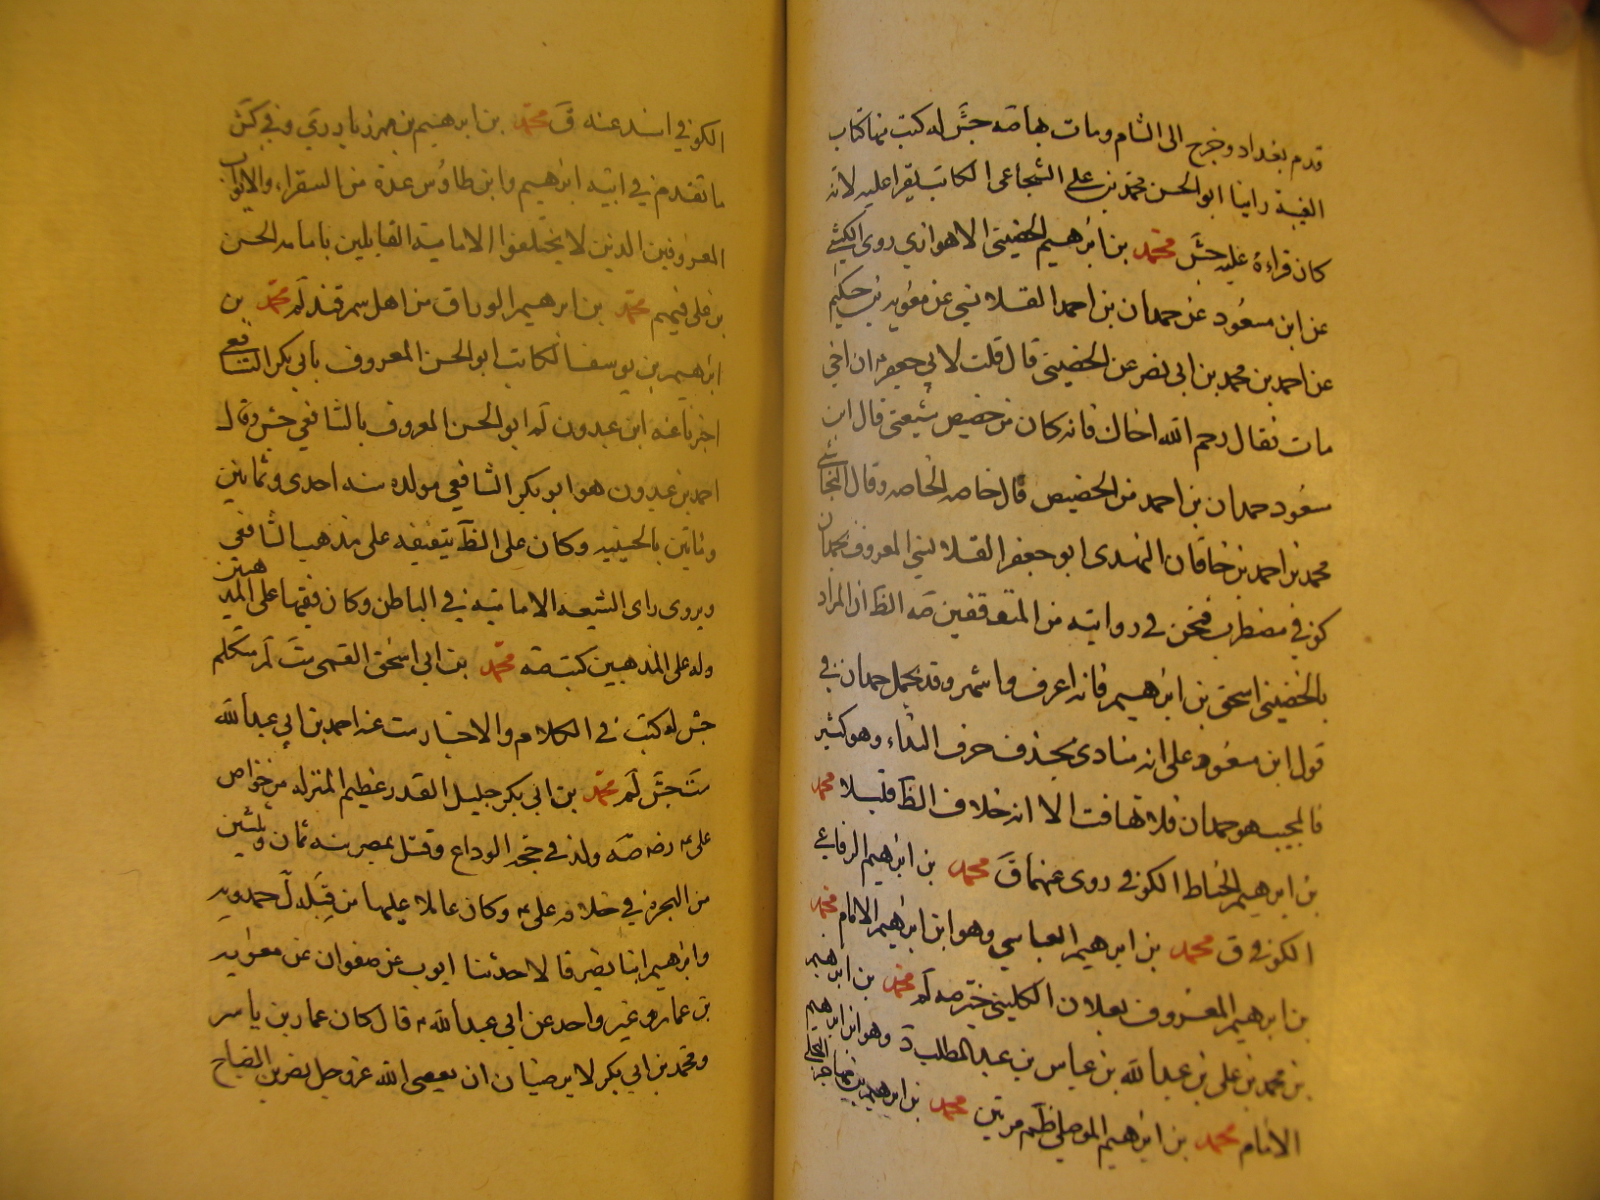 قدم بغداد وخرج الى الشام ومات بها صه جش له كتب منها كتاب
الغيبة راينا ابو الحسن محمد بن على الشجاعى الكاتب يقرا عليه لانه
كان قراءة عليه جش محمد بن ابرهيم الحضينى الاهوازى روى الكشى
عن ابن مسعود عن حمدان بن احمد القلانسى عن معويه بن حكيم
عن احمد بن محمد بن ابى نصر عن الحضينى قال قلت لابى جعفر ان اخى
مات فقال رحم الله اخاك فانه كان من خصيص شيعتى قال ابن
مسعود حمدان بن احمد من الخصيص قال خاصه الخاصه وقال النجاشى
محمد بن احمد بن خاقان النهدى ابو جعفر القلانسى المعروف بحمدان
كوفى مضطرب فنحن فى روايته من المتوقفين صه الظ ان المراد
بالحضينى اسحق بن ابرهيم فانه اعرف واشهر وقد يحمل حمدان فى
قول ابن مسعود على انه منادى بحذف حرف النداء وهو كثير
فالمجيب هو حمدان فلا تهافت الا انه خلاف الظ قليلا محمد
بن ابرهيم الخياط الكوفى روى عنهما ق محمد بن ابرهيم الرفاعى
الكوفى ق محمد بن ابرهيم العباسى وهو ابن ابرهيم الامام محمد
بن ابرهيم المعروف بعلان الكلينى خير صه لم محمد بن ابرهيم
بن محمد بن على بن عبدالله بن عباس بن عبدالمطلب وهو ابن ابرهيم
الامام محمد بن ابرهيم الموصلى ظم مرتين محمد بن ابرهيم بن مهاجر البجلى
الكوفى اسند عنه ق محمد بن ابرهيم بن مهزيار دى وفى كش
ما تقدم فى ابيه ابرهيم وابن طاوس عدة من السفراء والابواب
المعروفين الذين لا يختلفوا الامامية القايلين بامامة الحسن
بن على فيهم محمد بن ابرهيم الوراق من اهل سمرقند لم محمد بن
ابرهيم بن يوسف الكاتب ابو الحسن المعروف بابى بكر الشافعى
اخبرنا عنه ابن عبدون لم ابو الحسن المعروف بالشافعى جش وقال
احمد بن عبدون هو ابو بكر الشافعى مولده سنه احدى وثمانين
وماتين بالحسينيه وكان على الظ يتفقه على مذهب الشافعى
ويروى راى الشيعه الامامية فى الباطن وكان فقيها على المذهبين
وله على المذهبين كتب صه محمد بن ابى اسحق القمى ست لم متكلم
جش له كتب فى الكلام والاخبار ست عنه احمد بن ابى عبدالله
ست جش لم محمد بن ابى بكر جليل القدر عظيم المنزله من خواص
على ع رضه صه ولد فى حجة الوداع وقتل بمصر سنه ثمان وثلثين
من الهجرة فى خلافه على ع وكان عاملا عليها من قبله ل حمدويه
وابرهيم ابنا نصير قالا حدثنا ايوب عن صفوان عن معويه
بن عمار وغير واحد عن ابى عبدالله ع قال كان عمار بن ياسر
ومحمد بن ابى بكر لا يرضيان ان يعصى الله عز وجل نصر بن الصباح